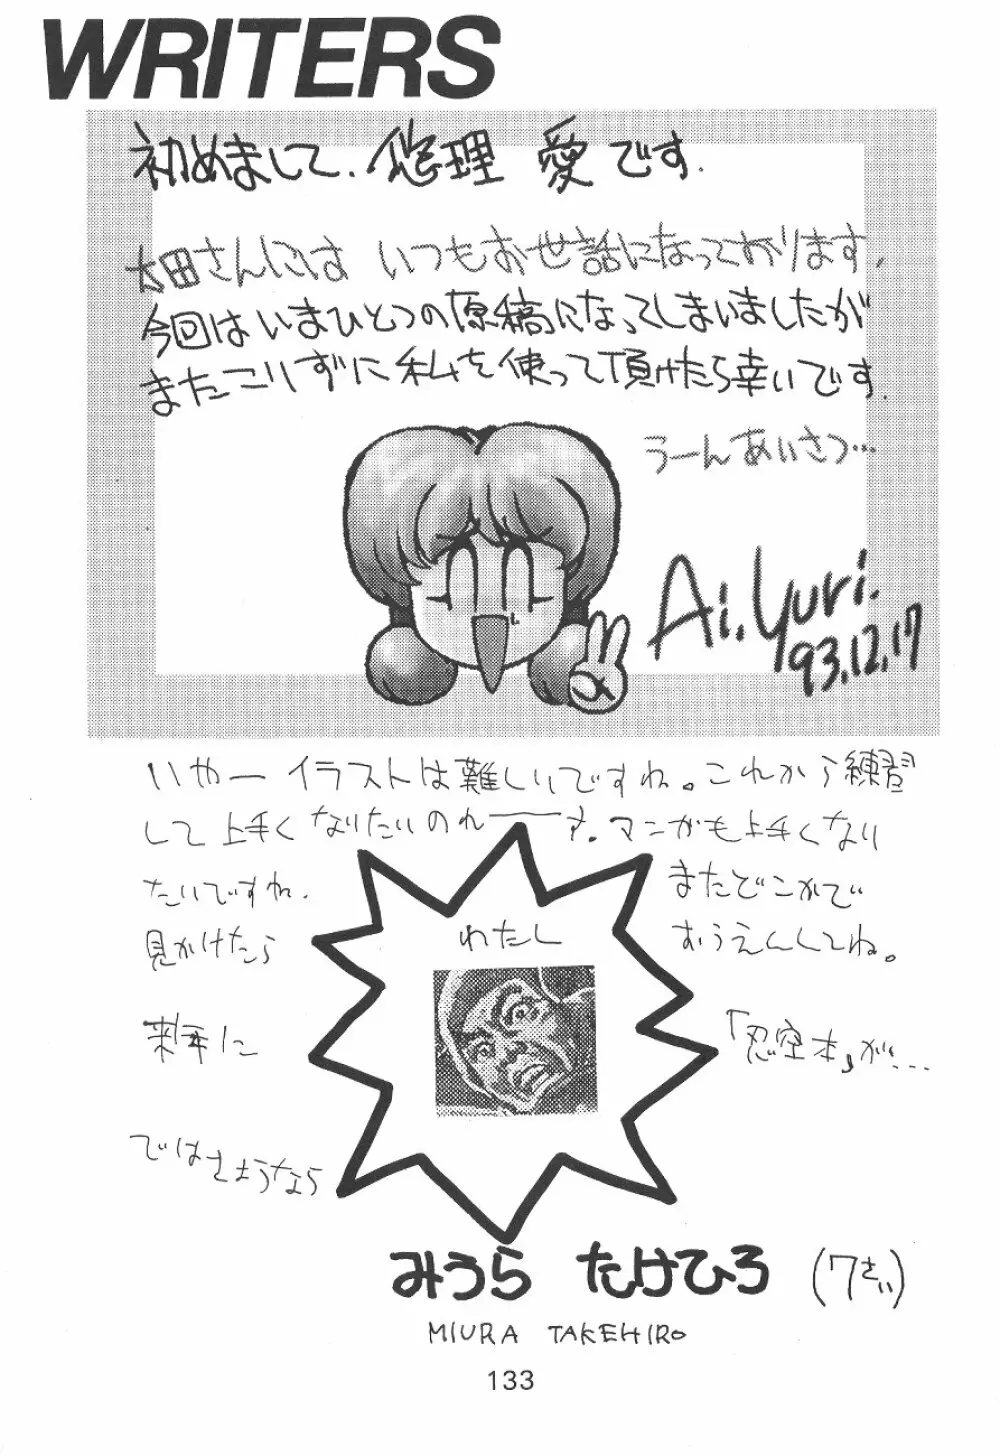 WRITERS
初めまして、悠理 愛です.
太田さんには いつもお世話になっております.
今回はいまひとつの原稿になってしまいましたが
またこりずに私を使って頂けたら幸いです.
うーんあいさつ…
Ai.Yuri.
93.12.17
いやー イラストは難しいですね。これから練習
して上手くなりたいのれーーす.マンガも上手くなり
たいですね.
またどこかで
見かけたら
おうえんしてね。
わたし
来年に
「忍空本」が...
ではさようなら
みうら たけひろ (7さい)
MIURA TAKEHIRO
133